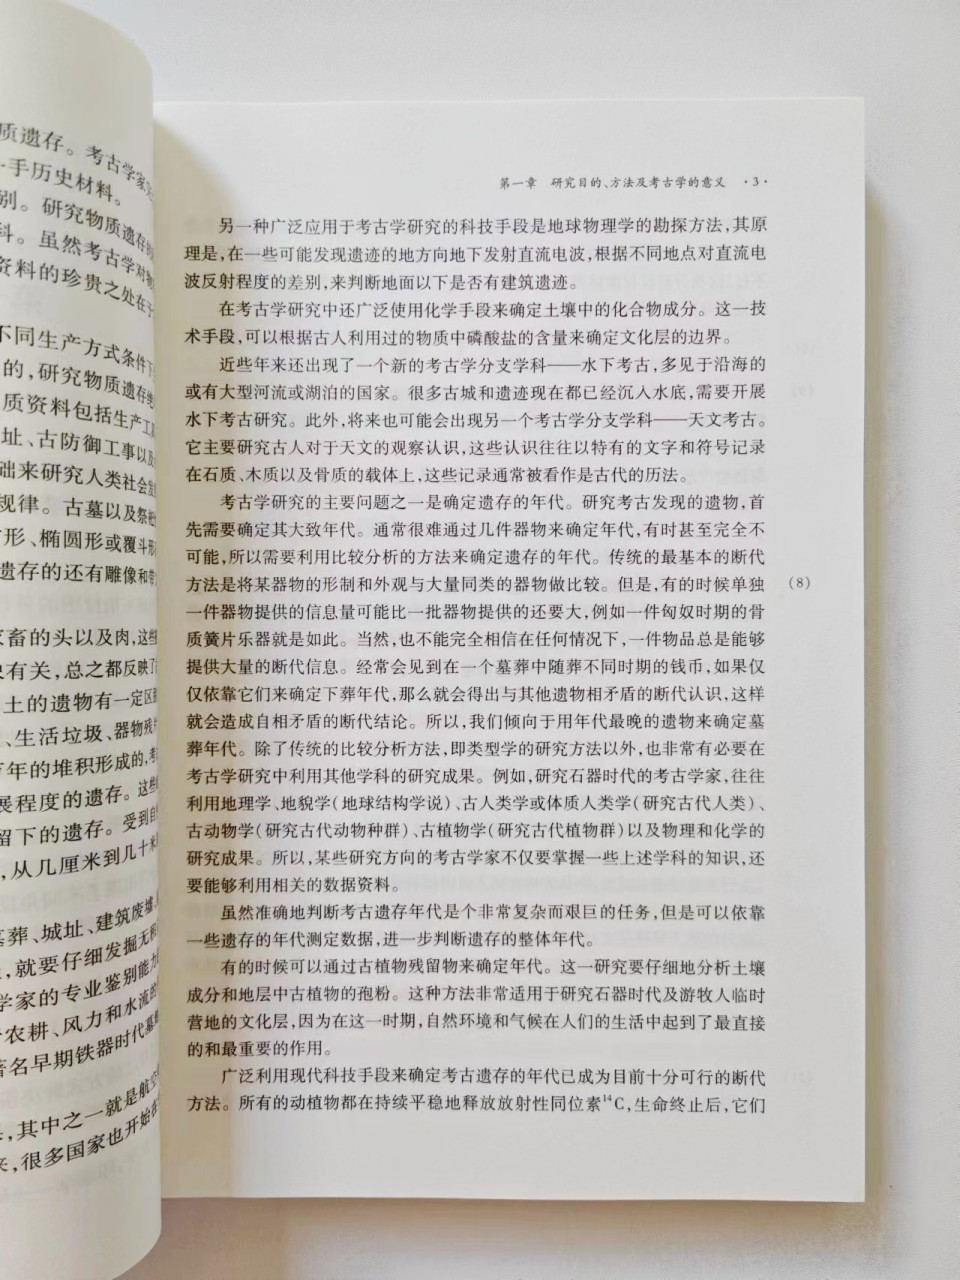 质遗存。考古学家
一手历史材料。
别。研究物质遗存
科。虽然考古学对物
资料的珍贵之处在于
不同生产方式条件下
的，研究物质遗存
质资料包括生产工具
址、古防御工事以及
础来研究人类社会发
规律。古墓以及祭
方形、椭圆形或覆斗形
遗存的还有雕像和
家畜的头以及肉，这些
有关，总之都反映了
土的遗物有一定区别
、生活垃圾、器物残
年的堆积形成的，考
展程度的遗存。这些
留下的遗存。受到自
，从几厘米到几十米
墓葬、城址、建筑废墟
，就要仔细发掘无
学家的专业鉴别能力
农耕、风力和水流的
著名早期铁器时代墓
，其中之一就是航空
来，很多国家也开始在
第一章 研究目的、方法及考古学的意义 ·3·
另一种广泛应用于考古学研究的科技手段是地球物理学的勘探方法，其原
理是，在一些可能发现遗迹的地方向地下发射直流电波，根据不同地点对直流电
波反射程度的差别，来判断地面以下是否有建筑遗迹。
在考古学研究中还广泛使用化学手段来确定土壤中的化合物成分。这一技
术手段，可以根据古人利用过的物质中磷酸盐的含量来确定文化层的边界。
近些年来还出现了一个新的考古学分支学科——水下考古，多见于沿海的
或有大型河流或湖泊的国家。很多古城和遗迹现在都已经沉入水底，需要开展
水下考古研究。此外，将来也可能会出现另一个考古学分支学科——天文考古。
它主要研究古人对于天文的观察认识，这些认识往往以特有的文字和符号记录
在石质、木质以及骨质的载体上，这些记录通常被看作是古代的历法。
考古学研究的主要问题之一是确定遗存的年代。研究考古发现的遗物，首
先需要确定其大致年代。通常很难通过几件器物来确定年代，有时甚至完全不
可能，所以需要利用比较分析的方法来确定遗存的年代。传统的最基本的断代
方法是将某器物的形制和外观与大量同类的器物做比较。但是，有的时候单独 （8）
一件器物提供的信息量可能比一批器物提供的还要大，例如一件匈奴时期的骨
质簧片乐器就是如此。当然，也不能完全相信在任何情况下，一件物品总是能够
提供大量的断代信息。经常会见到在一个墓葬中随葬不同时期的钱币，如果仅
仅依靠它们来确定下葬年代，那么就会得出与其他遗物相矛盾的断代认识，这样
就会造成自相矛盾的断代结论。所以，我们倾向于用年代最晚的遗物来确定墓
葬年代。除了传统的比较分析方法，即类型学的研究方法以外，也非常有必要在
考古学研究中利用其他学科的研究成果。例如，研究石器时代的考古学家，往往
利用地理学、地貌学（地球结构学说）、古人类学或体质人类学（研究古代人类）、
古动物学（研究古代动物种群）、古植物学（研究古代植物群）以及物理和化学的
研究成果。所以，某些研究方向的考古学家不仅要掌握一些上述学科的知识，还
要能够利用相关的数据资料。
虽然准确地判断考古遗存年代是个非常复杂而艰巨的任务，但是可以依靠
一些遗存的年代测定数据，进一步判断遗存的整体年代。
有的时候可以通过古植物残留物来确定年代。这一研究要仔细地分析土壤
成分和地层中古植物的孢粉。这种方法非常适用于研究石器时代及游牧人临时
营地的文化层，因为在这一时期，自然环境和气候在人们的生活中起到了最直接
的和最重要的作用。
广泛利用现代科技手段来确定考古遗存的年代已成为目前十分可行的断代
方法。所有的动植物都在持续平稳地释放放射性同位素¹⁴C，生命终止后，它们